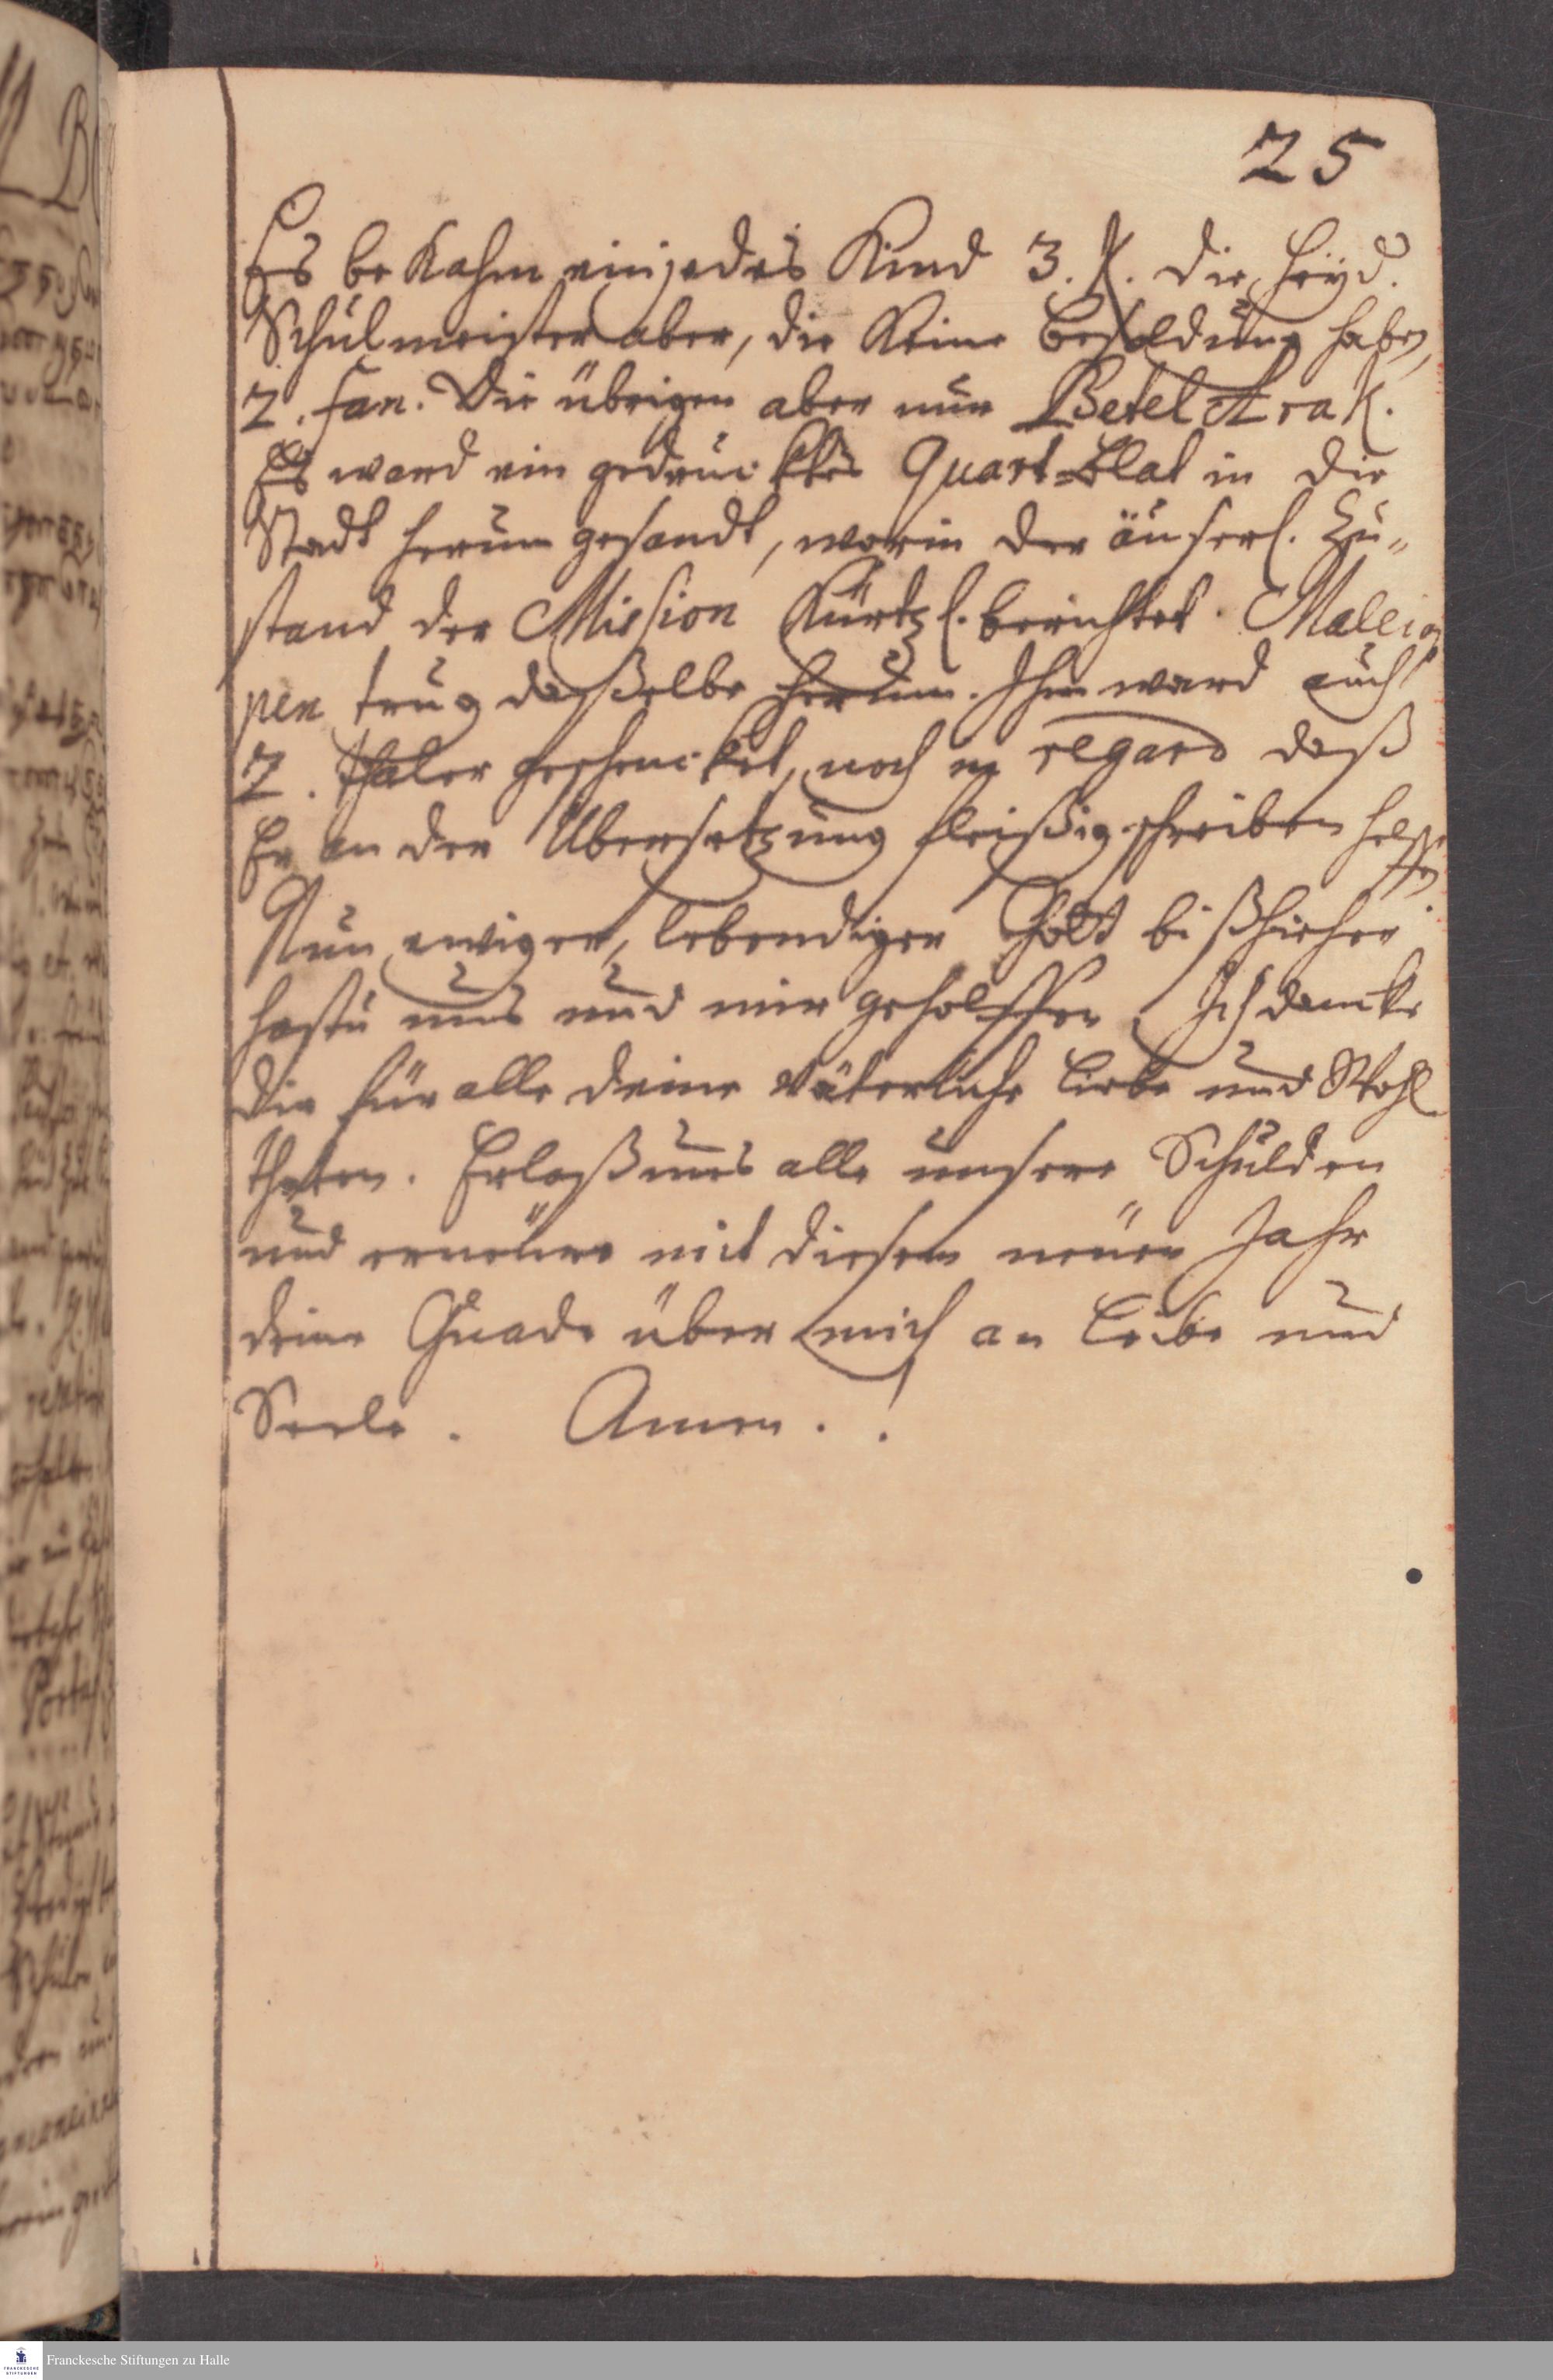 25
Es bekahm ein jedes Kind 3. K. die heÿd.
Schulmeister aber, die keine Besoldung haben,
2. fan. Die übrigen aber nur Betel Arak.
Es ward ein gedrucktes Quart-Blat in die
Stadt herum gesandt, worin der äuserl. Zu„
stand der Mission kürtzl. berichtet. Maleia
pen trug daßelbe herum. Ihm ward auch
2. Thaler geschencket, noch in regard daß
Er an der Ubersetzung fleißig schreiben helf
fen.
Nun ewiger, lebendiger Gott bißhieher
hastu uns und mir geholffen, Ich dancke
dir für alle deine väterliche Liebe und Wohl
thaten. Erlaß uns alle unsere Schulden
und erneüre mit diesem neüen Jahr
deine Gnade über mich an Leibe und
Seele. Amen.!
Franckesche Stiftungen zu Halle